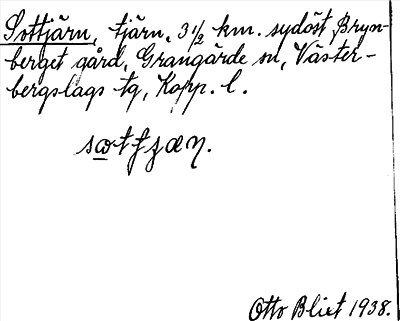 Sottjärn, tjärn, 3 1/2 km. sydöst Bryn-
berget gård, Grangärde sn, Väster-
bergslags tg, Kopp. l.
Otto Bliet 1938.